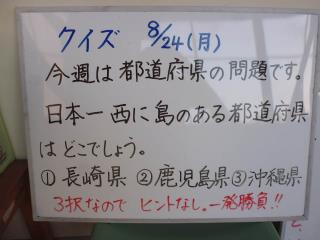 クイズ 8/24(月)
今週は都道府県の問題です。
日本一西に島のある都道府県
はどこでしょう。
①長崎県 ②鹿児島県 ③沖縄県
3択なので ヒントなし。一発勝負!!